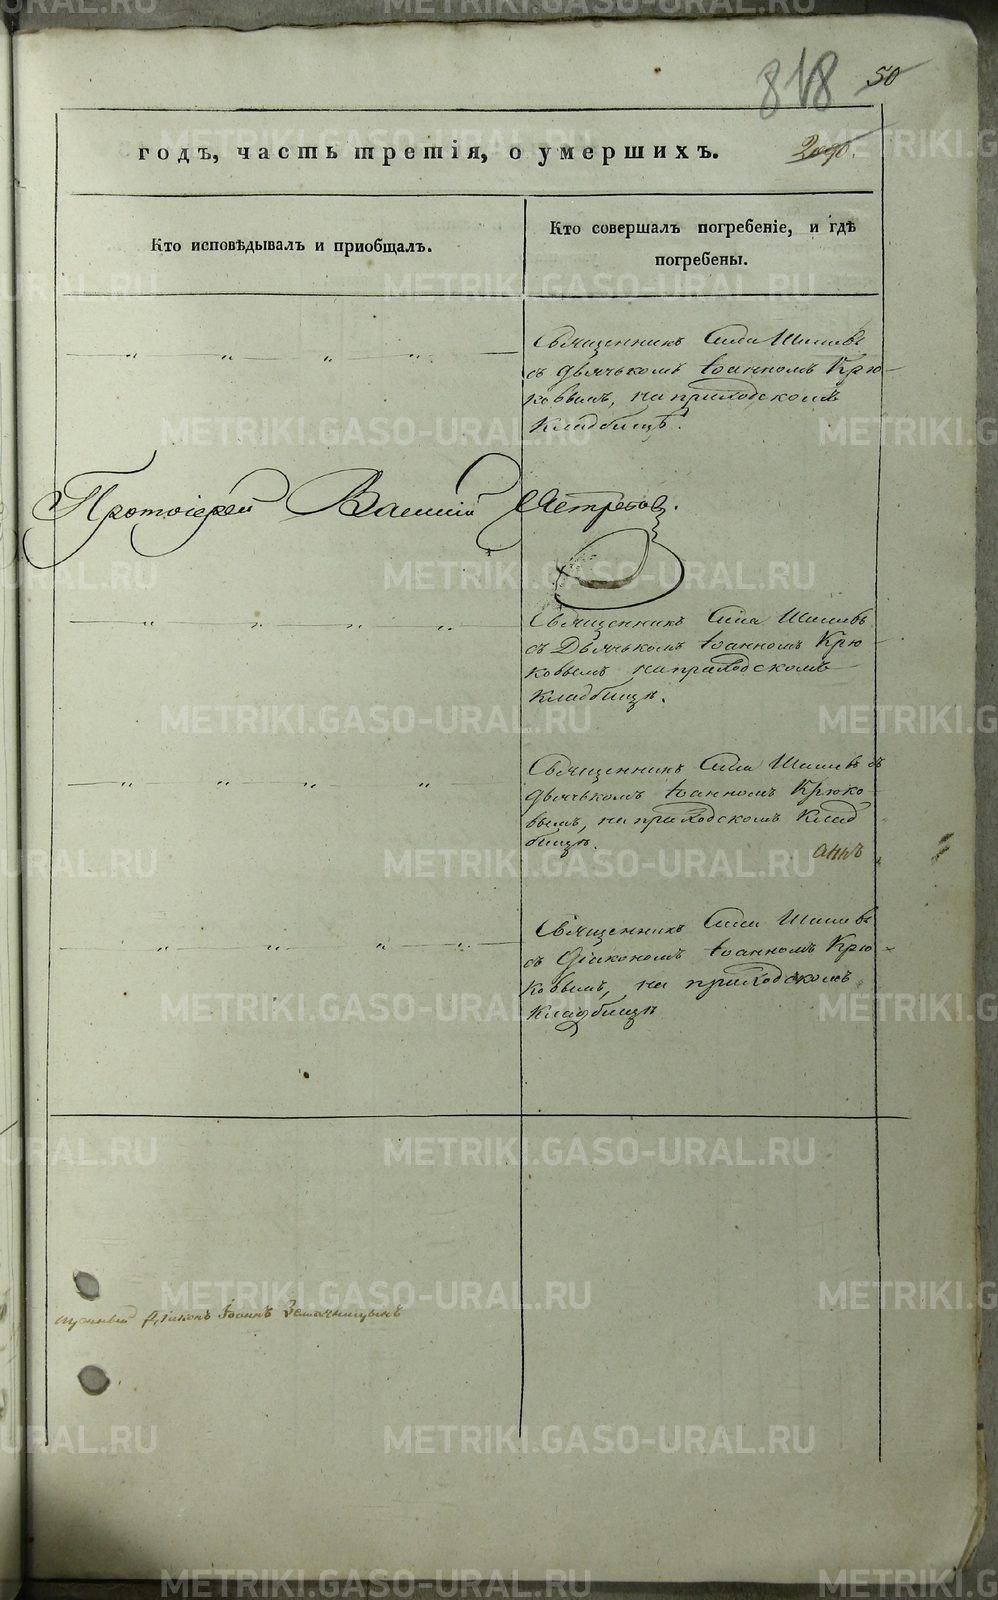 818 50
годъ, часть третія, о умершихъ.
Кто исповѣдывалъ и пріобщалъ.
Кто совершалъ погребеніе, и гдѣ
погребены.
Священникъ Сила
съ дьячькомъ Іоанномъ Крю-
ковымъ, на приходскомъ
кладбищѣ.
Протоіерей Василій Ястребов.
Священникъ Сила
съ Дьячькомъ Іоанномъ Крю-
ковымъ на приходскомъ
кладбищѣ.
Священникъ Сила съ
дьячькомъ Іоанномъ Крюко-
вымъ, на приходскомъ клад
бищѣ.
Священникъ Сила
съ Діакономъ Іоанномъ Крю-
ковымъ, на приходскомъ
кладбищѣ
Діаконъ Іоаннъ
METRIKI.GASO-URAL.RU